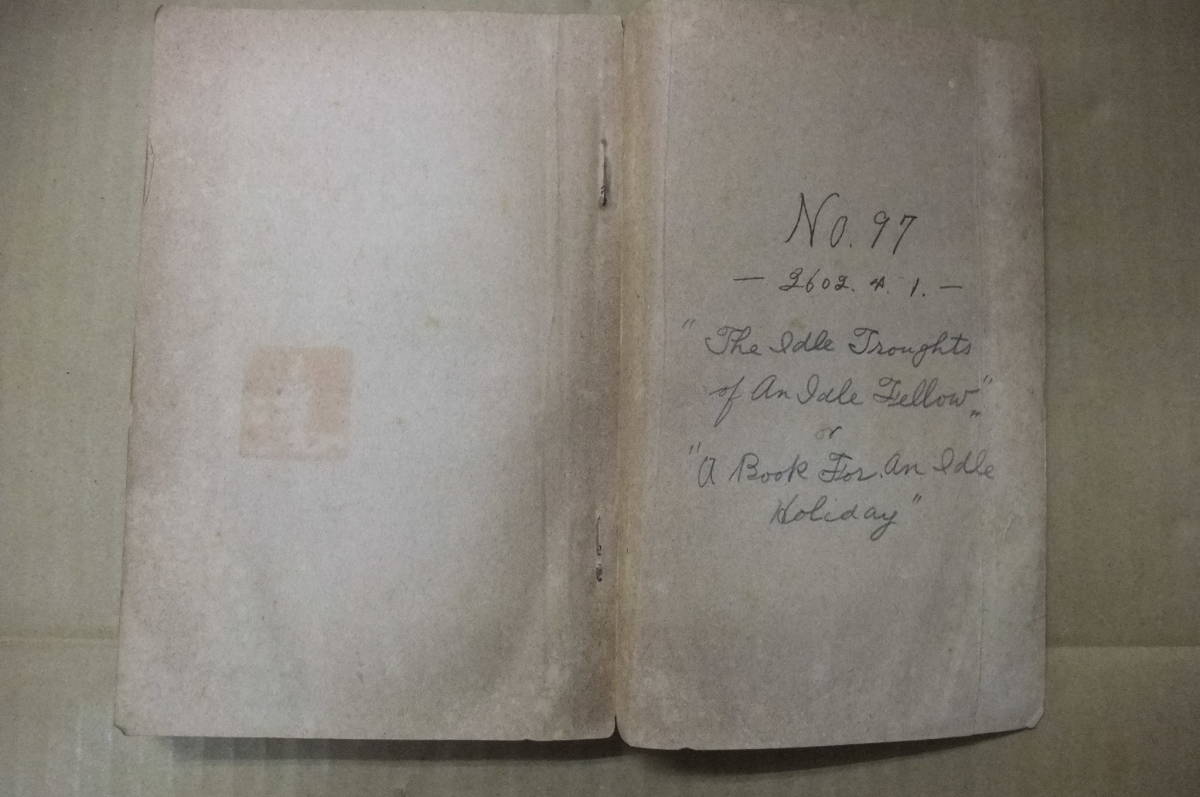 No. 97
— 2602. 4. 1. —
"The Idle Troughts
of An Idle Fellow"
or
"A Book For An Idle
Holiday"